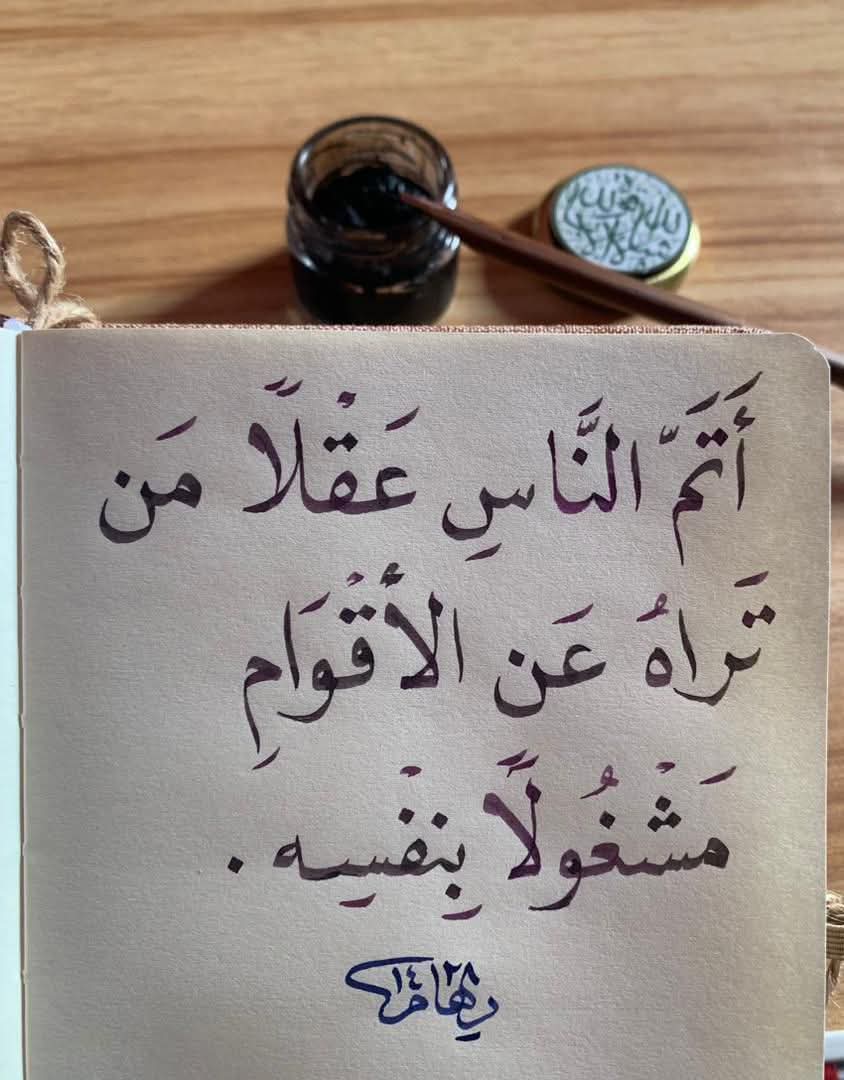 أَتَمَّ النَّاسِ عَقْلًا مَن
تَراهُ عَن الأَقْوَامِ
مَشْغُولًا بِنفْسِه .
رهام ١٤٢٨